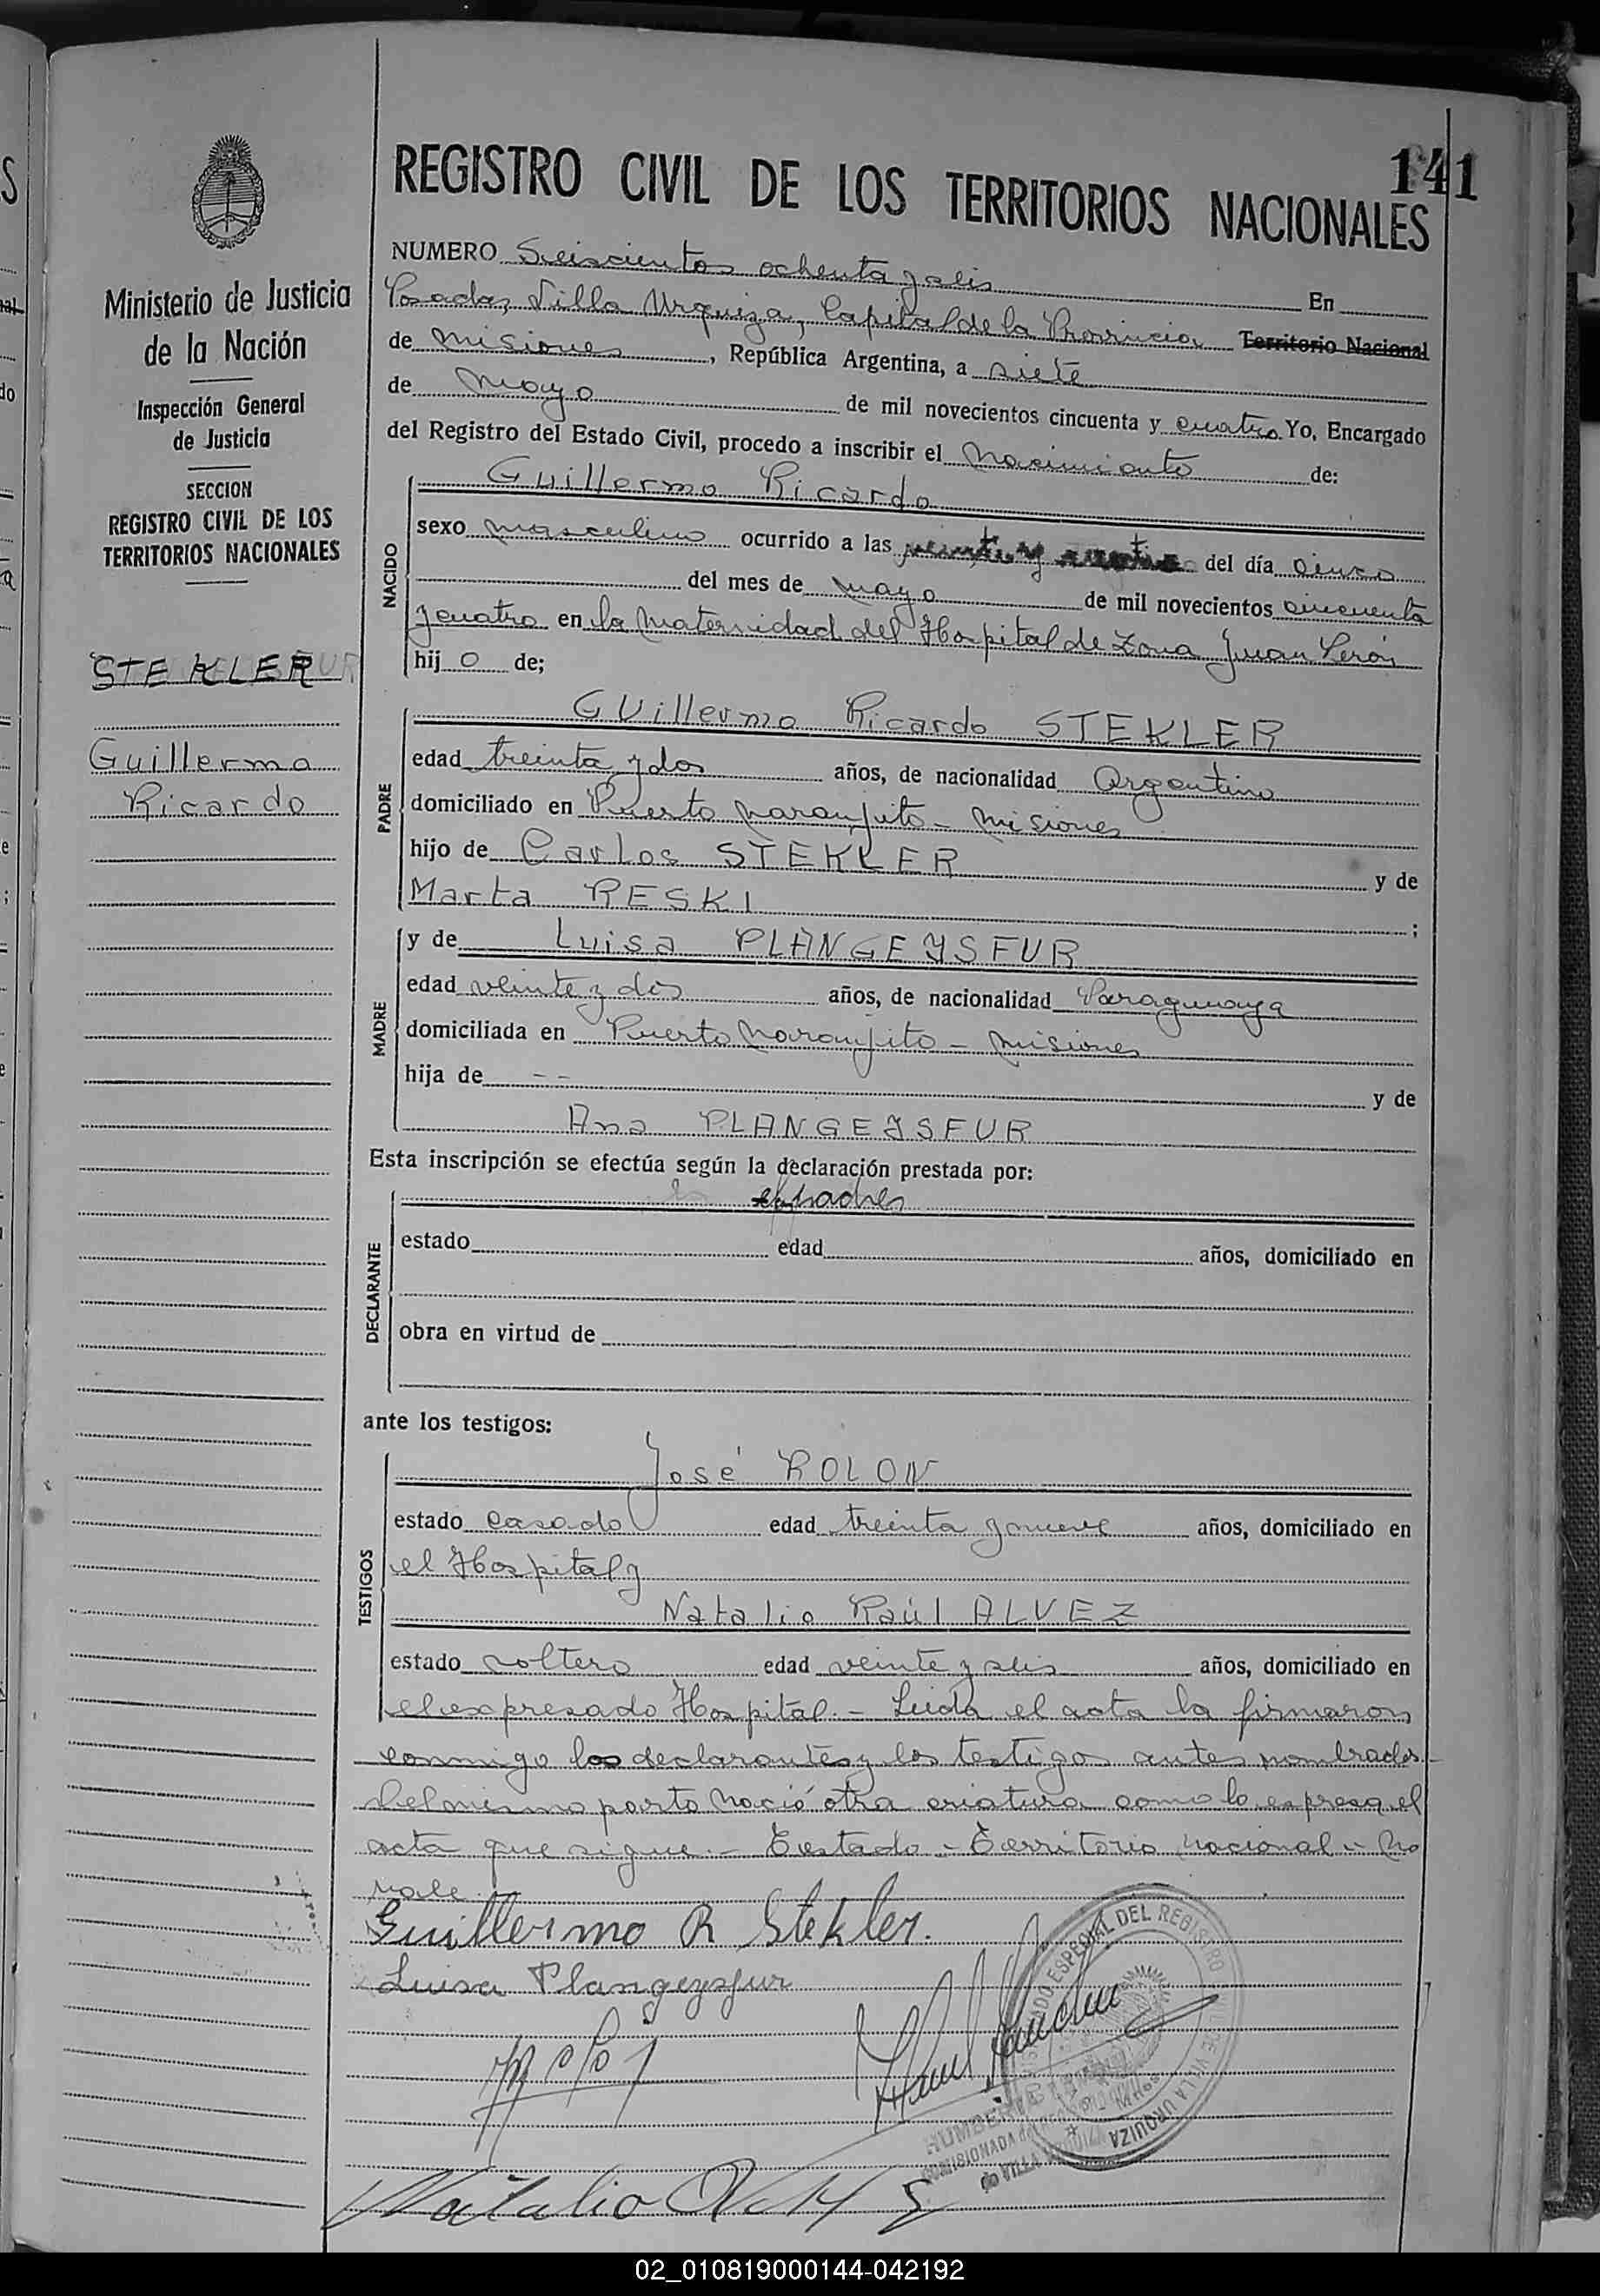 141
REGISTRO CIVIL DE LOS TERRITORIOS NACIONALES
Ministerio de Justicia
de la Nación
Inspección General
de Justicia
SECCION
REGISTRO CIVIL DE LOS
TERRITORIOS NACIONALES
STEKLER
Guillermo
Ricardo
NUMERO Seiscientos ochenta y seis En
Posadas, Villa Urquiza, Capital de la Provincia Territorio Nacional
de Misiones, República Argentina, a siete
de Mayo de mil novecientos cincuenta y cuatro Yo, Encargado
del Registro del Estado Civil, procedo a inscribir el Nacimiento de:
NACIDO
Guillermo Ricardo
sexo masculino ocurrido a las veinte y cuatro del día cinco
del mes de mayo de mil novecientos cincuenta
y cuatro en la Maternidad del Hospital de Zona Juan Perón
hijo de;
PADRE
Guillermo Ricardo STEKLER
edad treinta y dos años, de nacionalidad Argentino
domiciliado en Puerto Naranjito - Misiones
hijo de Carlos STEKLER y de
Marta RESKI ;
MADRE
y de Luisa PLANGEYSFUR
edad veinte y dos años, de nacionalidad Paraguaya
domiciliada en Puerto Naranjito - Misiones
hija de -- y de
Ana PLANGEYSFUR
Esta inscripción se efectúa según la declaración prestada por:
DECLARANTE
padres
estado edad años, domiciliado en
obra en virtud de
ante los testigos:
TESTIGOS
José ROLON
estado casado edad treinta y nueve años, domiciliado en
el Hospital y
Natalio Raúl ALVEZ
estado soltero edad veinte y seis años, domiciliado en
el expresado Hospital. - Leída el acta la firmaron
conmigo los declarantes y los testigos antes nombrados.-
Del mismo parto nació otra criatura como lo espresa el
acta que sigue.- Testado - Territorio Nacional - No
vale
Guillermo R Stekler.
Luisa Plangeysfur
Natalio
ESPECIAL DEL REGISTRO
VILLA URQUIZA
02_010819000144-042192